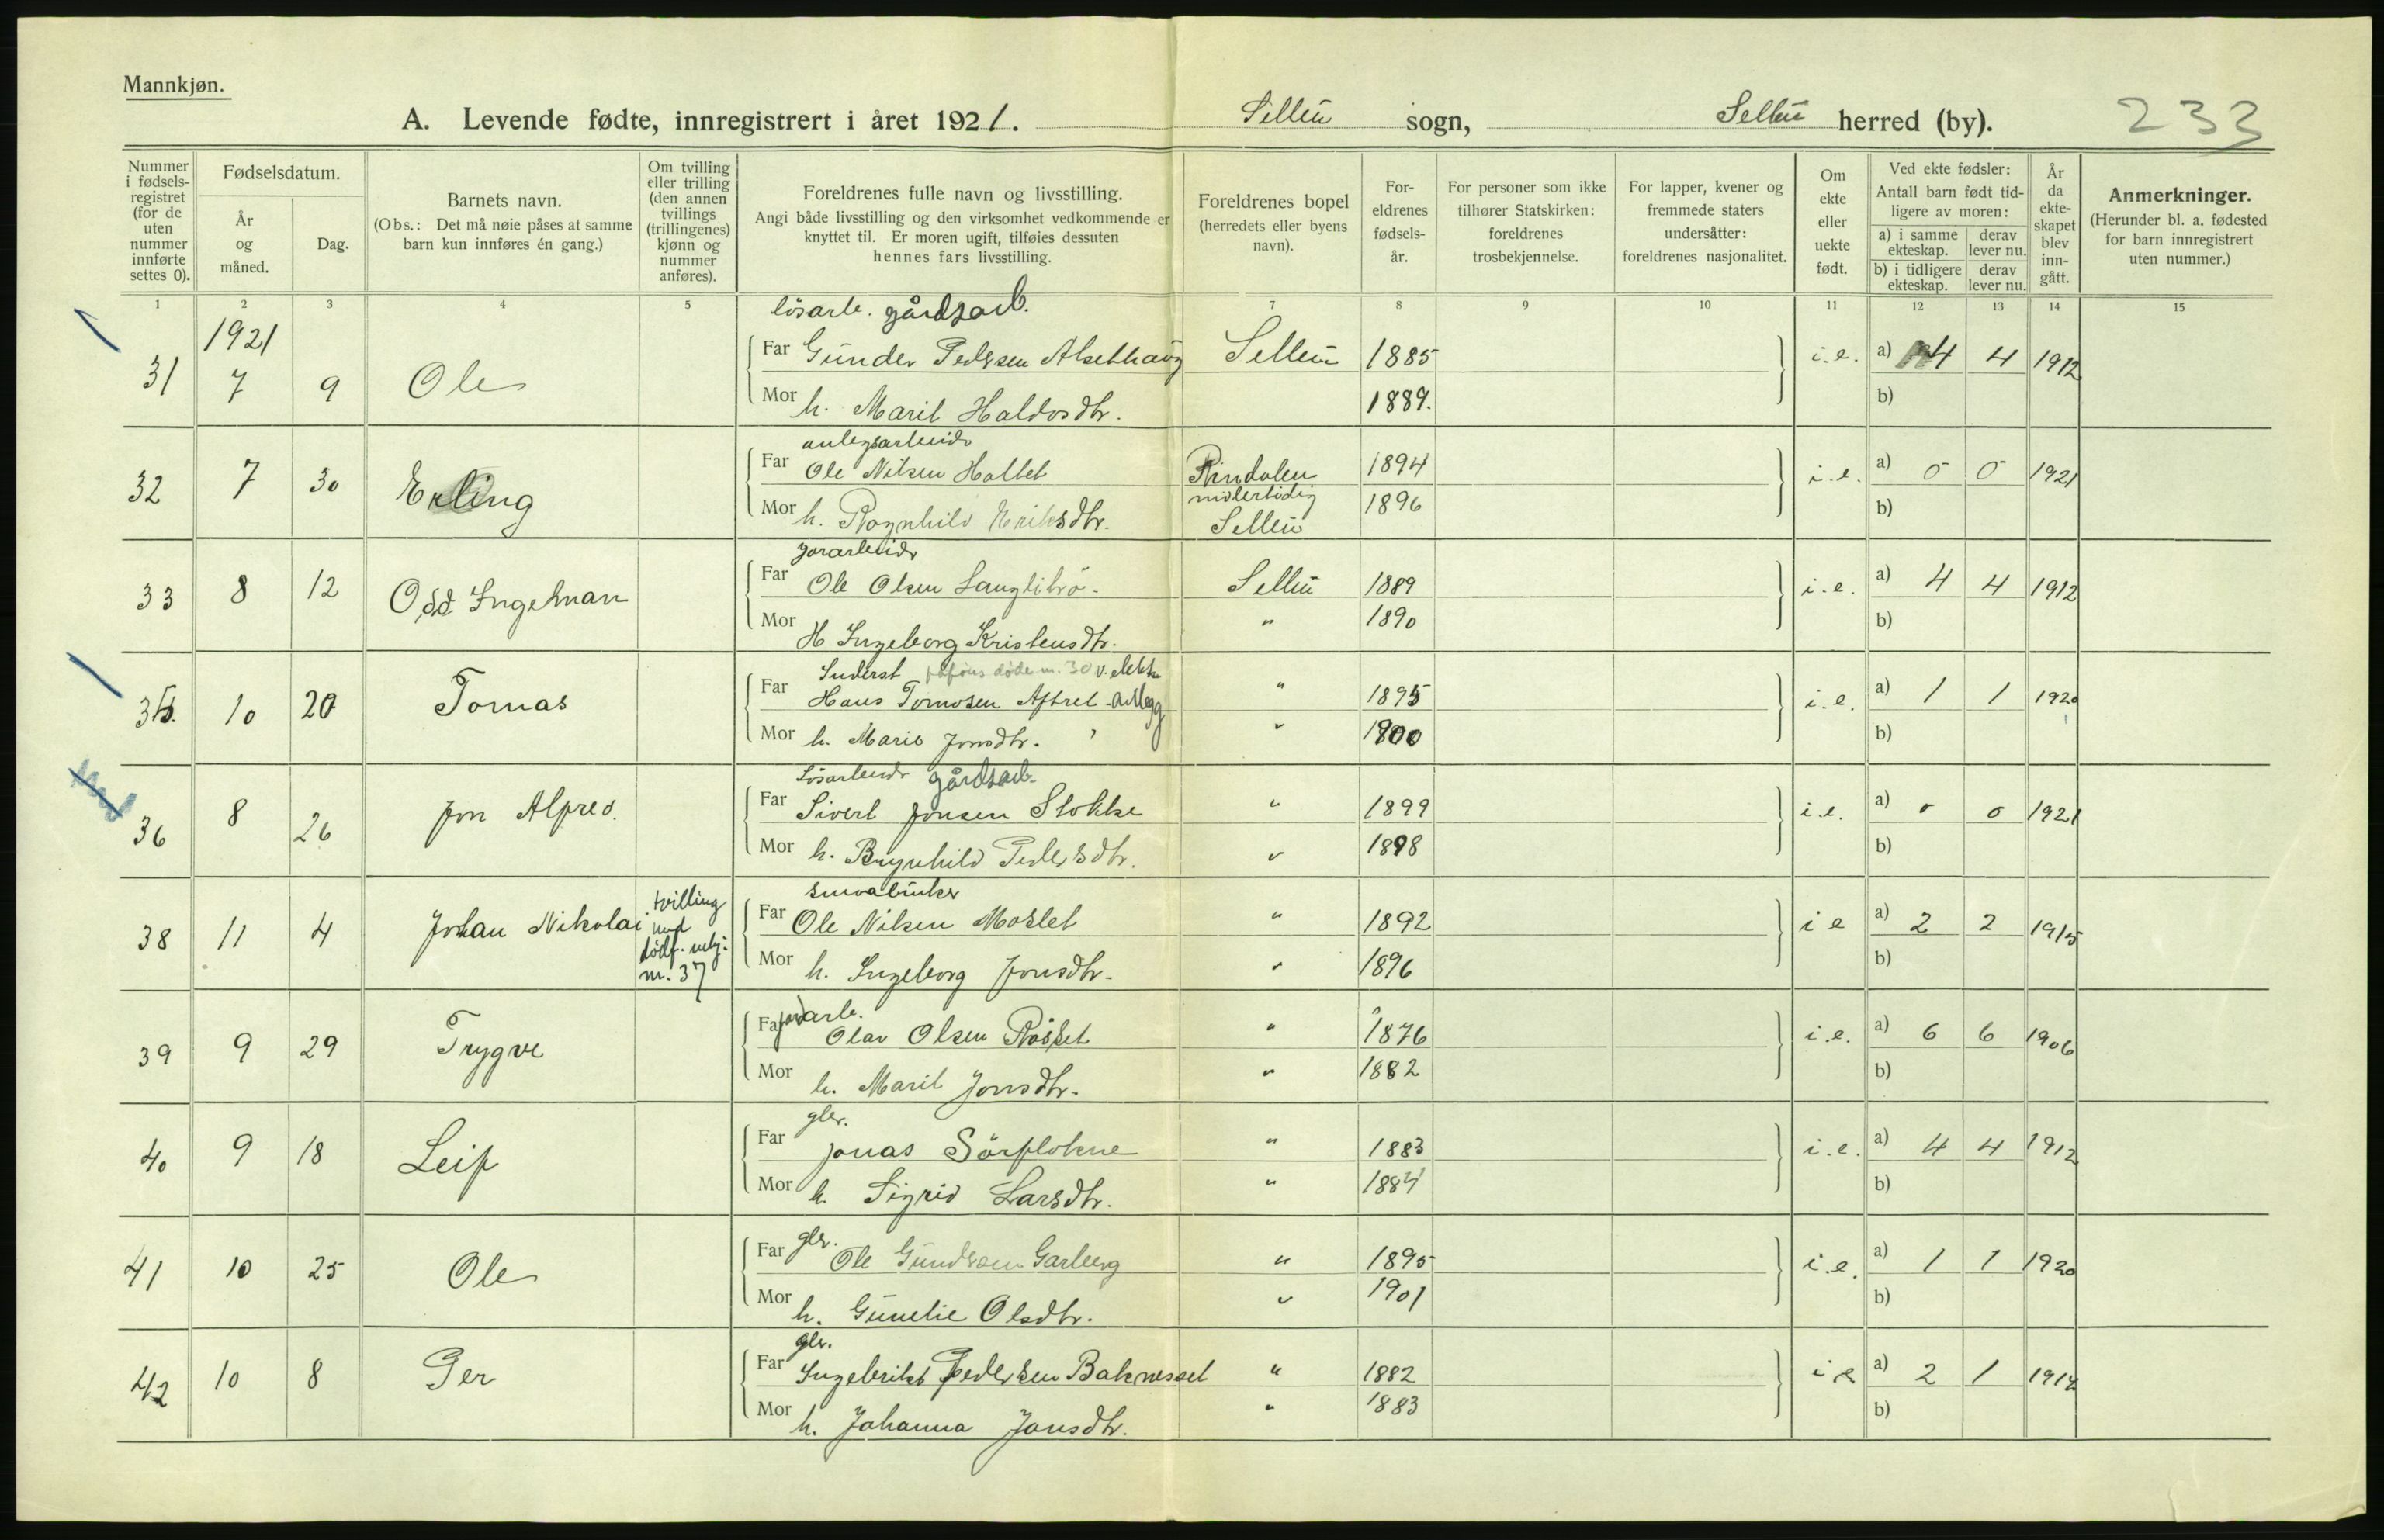 Mannkjøn.
A. Levende fødte, innregistrert i året 1921. Selbu sogn, Selbu herred (by). 233
Nummer i fødsels-registret (for de uten nummer innførte settes 0).
Fødselsdatum.
År og måned.
Dag.
Barnets navn.
(Obs.: Det må nøie påses at samme barn kun innføres én gang.)
Om tvilling eller trilling (den annen tvillings (trillingenes) kjønn og nummer anføres).
Foreldrenes fulle navn og livsstilling.
Angi både livsstilling og den virksomhet vedkommende er knyttet til. Er moren ugift, tilføies dessuten hennes fars livsstilling.
Foreldrenes bopel
(herredets eller byens navn).
For-eldrenes fødsels-år.
For personer som ikke tilhører Statskirken: foreldrenes trosbekjennelse.
For lapper, kvener og fremmede staters undersåtter: foreldrenes nasjonalitet.
Om ekte eller uekte født.
Ved ekte fødsler:
Antall barn født tid-ligere av moren:
a) i samme ekteskap. derav lever nu.
b) i tidligere ekteskap. derav lever nu.
År da ekte-skapet blev inn-gått.
Anmerkninger.
(Herunder bl. a. fødested for barn innregistrert uten nummer.)
1 2 3 4 5 7 8 9 10 11 12 13 14 15
løsarb. gårdsarb.
1921
31 7 9 Ole Far Gunder Pedersen Alsethaug Selbu 1885 i.e. a) 4 4 1912
Mor h. Marit Haldosdtr. 1889. b)
anlegsarbeider
32 7 30 Erling Far Ole Nilsen Hallet Rindalen 1894 i.e. a) 0 0 1921
midlertidig
Mor h. Ragnhild Eriksdtr. Selbu 1896 b)
jorarbeider
33 8 12 Odd Ingelman Far Ole Olsen Langlitrø. Selbu 1889 i.e. a) 4 4 1912
Mor H Ingeborg Kristensdtr. " 1890 b)
Inderst døde nr. 30 v. elektr
35. 10 20 Tomas Far Hans Tomasen Aftret anlegg " 1895 i.e. a) 1 1 1920
Mor h. Marie Jonsdtr. " 1900 b)
Løsarbeider gårdsarb.
36 8 26 Jon Alfred. Far Sivert Jonsen Stokke " 1899 i.e. a) 0 0 1921
Mor h. Brynhild Pedersdtr. " 1898 b)
småbruker
38 11 4 Johan Nikolai tvilling med dødf. nr. 37 Far Ole Nilsen Moslet " 1892 i e a) 2 2 1915
Mor h. Ingeborg Jonsdtr. " 1896 b)
jordarb.
39 9 29 Trygve Far Olav Olsen Røsset " 1876 i.e. a) 6 6 1906
Mor h. Marit Jonsdtr. " 1882 b)
gbr.
40 9 18 Leif Far Jonas Sørflokne " 1883 i.e. a) 4 4 1912
Mor h. Sigrid Larsdtr. " 1884 b)
gbr.
41 10 25 Ole Far Ole Gundersen Garberg " 1895 i.e. a) 1 1 1920
Mor h. Gunelie Olsdtr. " 1901 b)
gbr.
42 10 8 Per Far Ingebrikt Pedersen Baknesset " 1882 i e a) 2 1
Mor h. Johanna Jonsdtr. " 1883 b)